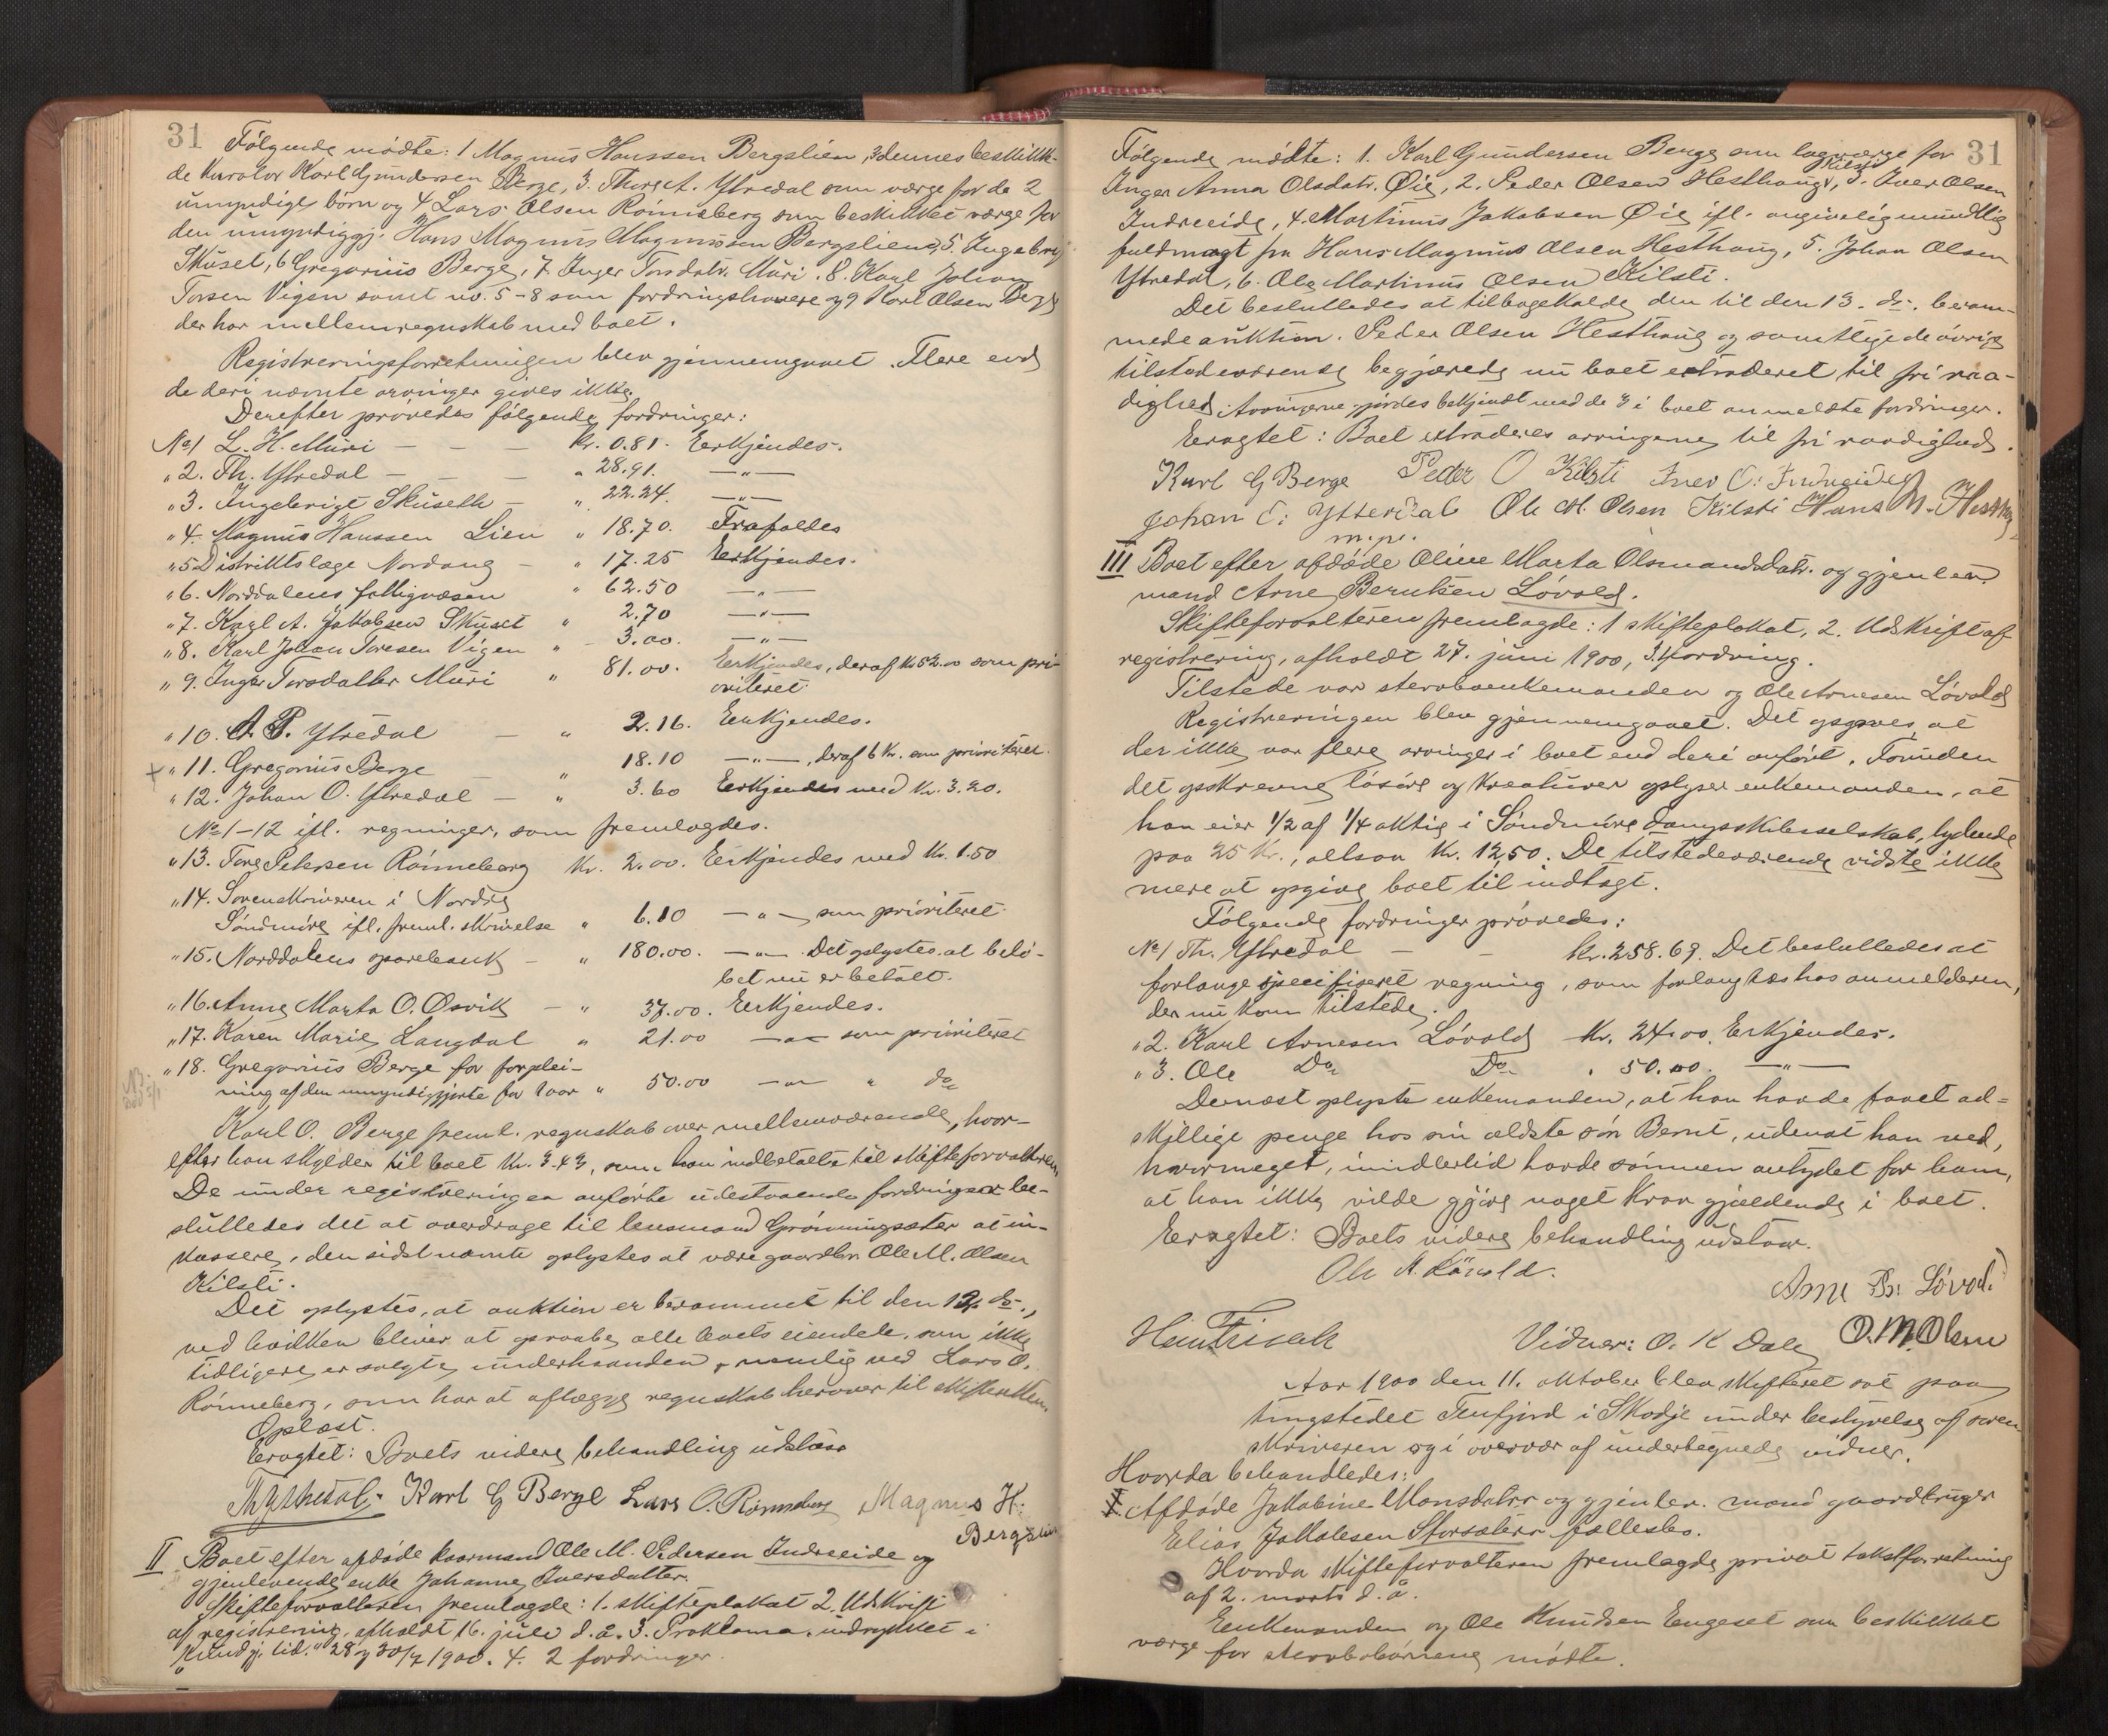 31
Følgende mødte: 1 Magnus Hanssen Bergslien, 2 dennes beskikke-
de kurator Karl Gundersen Berge, 3. Thore A. Ytredal som værge for de 2
umyndige børn og 4 Lars Olsen Rønneberg som beskikket værge for
den umyndiggj. Hans Magnus Magnussen Bergslien, 5. Ingebrigt
Skuset, 6 Gregorius Berge, 7. Inger Torsdatr. Muri. 8. Karl Johan
Torsen Vigen samt no. 5-8 som fordringshavere og 9 Karl Olsen Berge
der har mellemregnskab med boet.
Registreringsforretningen blev gjennemgaaet. Flere end
de deri nævnte arvinger gives ikke.
Derefter prøvedes følgende fordringer:
No 1 L. H. Muri — — — kr. 0.81. Erkjendes.
" 2. Th. Ytredal — — — " 28.91. —"—
" 3. Ingebrigt Skuseth — " 22.24. —"—
" 4. Magnus Hanssen Lien " 18.70. Frafaldes
" 5 Distriktslæge Nordang — " 17.25 Erkjendes.
" 6. Norddalens fattigvæsen " 62.50 —"—
" 7. Karl A. Jakobsen Skuset " 2.70 —"—
" 8. Karl Johan Toresen Vigen " 3.00. —"—
" 9. Inger Torsdatter Muri " 81.00. Erkjendes, deraf kr 52.00 som pri-
oriteret.
" 10. A. P. Ytredal — " 2.16. Erkjendes.
+ " 11. Gregorius Berge " 18.10 —"—, deraf 6 kr. som prioriteret.
" 12. Johan O. Ytredal — " 3.60 Erkjendes med kr. 3.20.
No 1-12 ifl. regninger, som fremlagdes.
" 13. Tore Petersen Rønneberg kr. 2.00. Erkjendes med kr. 1.50
" 14. Sorenskriveren i Nordre
Søndmøre ifl. freml. skrivelse " 6.10 —"— som prioriteret.
" 15. Norddalens sparebank — " 180.00. —"— Det oplystes at belø-
bet nu er betalt.
" 16. Anne Marta O. Øsvik — " 37.00. Erkjendes.
" 17. Karen Marie Langdal " 21.00 —"— som prioriteret
" 18. Gregorius Berge for forplei-
ning af den umyndiggjorte for 1 aar " 50.00 —"— " do
Karl O. Berge freml. regnskab over mellemværende, hvor-
efter han skylder til boet kr. 3.43, som han indbetalte til skifteforvalteren
De under registreringen anførte udestaaende fordringer be-
sluttedes det at overdrage til lensmand Grønningsæter at in-
kassere, den sidstnævnte oplystes at være gaardbr. Ole M. Olsen
Kilsti.
Det oplystes, at auktion er berammet til den 12. ds.,
ved hvilken bliver at opraabe alle boets eiendele, som ikke
tidligere er solgte underhaanden, nemlig ved Lars O.
Rønneberg, som har at aflægge regnskab herover til skifteretten.
Oplæst.
Eragtet: Boets videre behandling udstaar
Th Ytredal. Karl G Berge Lars O. Rønneberg Magnus H:
Bergslien
II Boet efter afdøde kaarmand Ole M. Pedersen Indreeide og
gjenlevende enke Johanne Iversdatter.
Skifteforvalteren fremlagde: 1. skifteplakat 2. Udskrift
af registrering, afholdt 16. juli d.å. 3. Proklama, udrykket i
"Kundgj. tid." 28 og 30/7 1900. 4. 2 fordringer.
31
Følgende mødte: 1. Karl Gundersen Berge som lagværge for
Inger Anna Olsdatr. Øie, 2. Peder Olsen Hesthaug, Kilsti, 3. Iver Olsen
Indreeide, 4. Martinus Jakobsen Øie ifl. angivelig mundtlig
fuldmagt fra Hans Magnus Olsen Hesthaug, 5. Johan Olsen
Ytredal, 6. Ole Martinus Olsen Kilsti.
Det besluttedes at tilbagekalde den til den 13. ds. beram-
mede auktion. Peder Olsen Hesthaug og samtlige de øvrige
tilstedeværende begjærede nu boet extraderet til fri raa-
dighed. Arvingerne gjordes bekjendt med de 3 i boet anmeldte fordringer.
Eragtet: Boet extraderes arvingerne til fri raadighed.
Karl G Berge Peder O Kilsti Iver O: Indreeide
Johan O: Ytterdal Ole M. Olsen Kilsti Hans M. Hesthaug
m.p.
III Boet efter afdøde Oline Marta Olsmandsdatr. og gjenlev.
mand Arne Berntsen Løvold.
Skifteforvalteren fremlagde: 1 skifteplakat, 2. Udskrift af
registrering, afholdt 27. juni 1900, 3. fordring.
Tilstede var stervboenkemanden og Ole Arnesen Løvold
Registreringen blev gjennemgaaet. Det opgaves, at
der ikke var flere arvinger i boet end deri anført. Foruden
det opskrevne løsøre og kreaturer oplyser enkemanden, at
han eier 1/2 af 1/4 aktie i Søndmøre dampskibsselskab, lydende
paa 25 kr., altsaa kr. 12,50. De tilstedeværende vidste ikke
mere at opgive boet til indtægt.
Følgende fordringer prøvedes:
No 1 Th. Ytredal — — kr. 258.69. Det besluttedes at
forlange specificeret regning, som forlangtes hos anmelderen,
der nu kom tilstede.
" 2. Karl Arnesen Løvold kr. 24.00. Erkjendes.
" 3. Ole Do Do " 50.00. —"—
Dernæst oplyste enkemanden, at han havde faaet ad-
skillige penge hos sin ældste søn Bernt, udenat han ved,
hvormeget, imidlertid havde sønnen antydet for ham,
at han ikke vilde gjøre noget krav gjældende i boet.
Eragtet: Boets videre behandling udstaar.
Ole A. Løvold.
Arne Br: Løvold
Vidner: O. K Dale O. M. Olsen
Aar 1900 den 11. oktober blev skifteret sat paa
tingstedet Tenfjord i Skodje under bestyrelse af soren-
skriveren og i overvær af undertegnede vidner.
Hvorda behandledes:
I. Afdøde Jakobine Monsdatter og gjenlev. mand gaardbruger
Elias Jakobsen Storsæters fællesbo.
Hvorda skifteforvalteren fremlagde privat takstforretning
af 2. marts d.å.
Enkemanden og Ole Knudsen Engeset som beskikket
værge for stervbobørnene mødte.